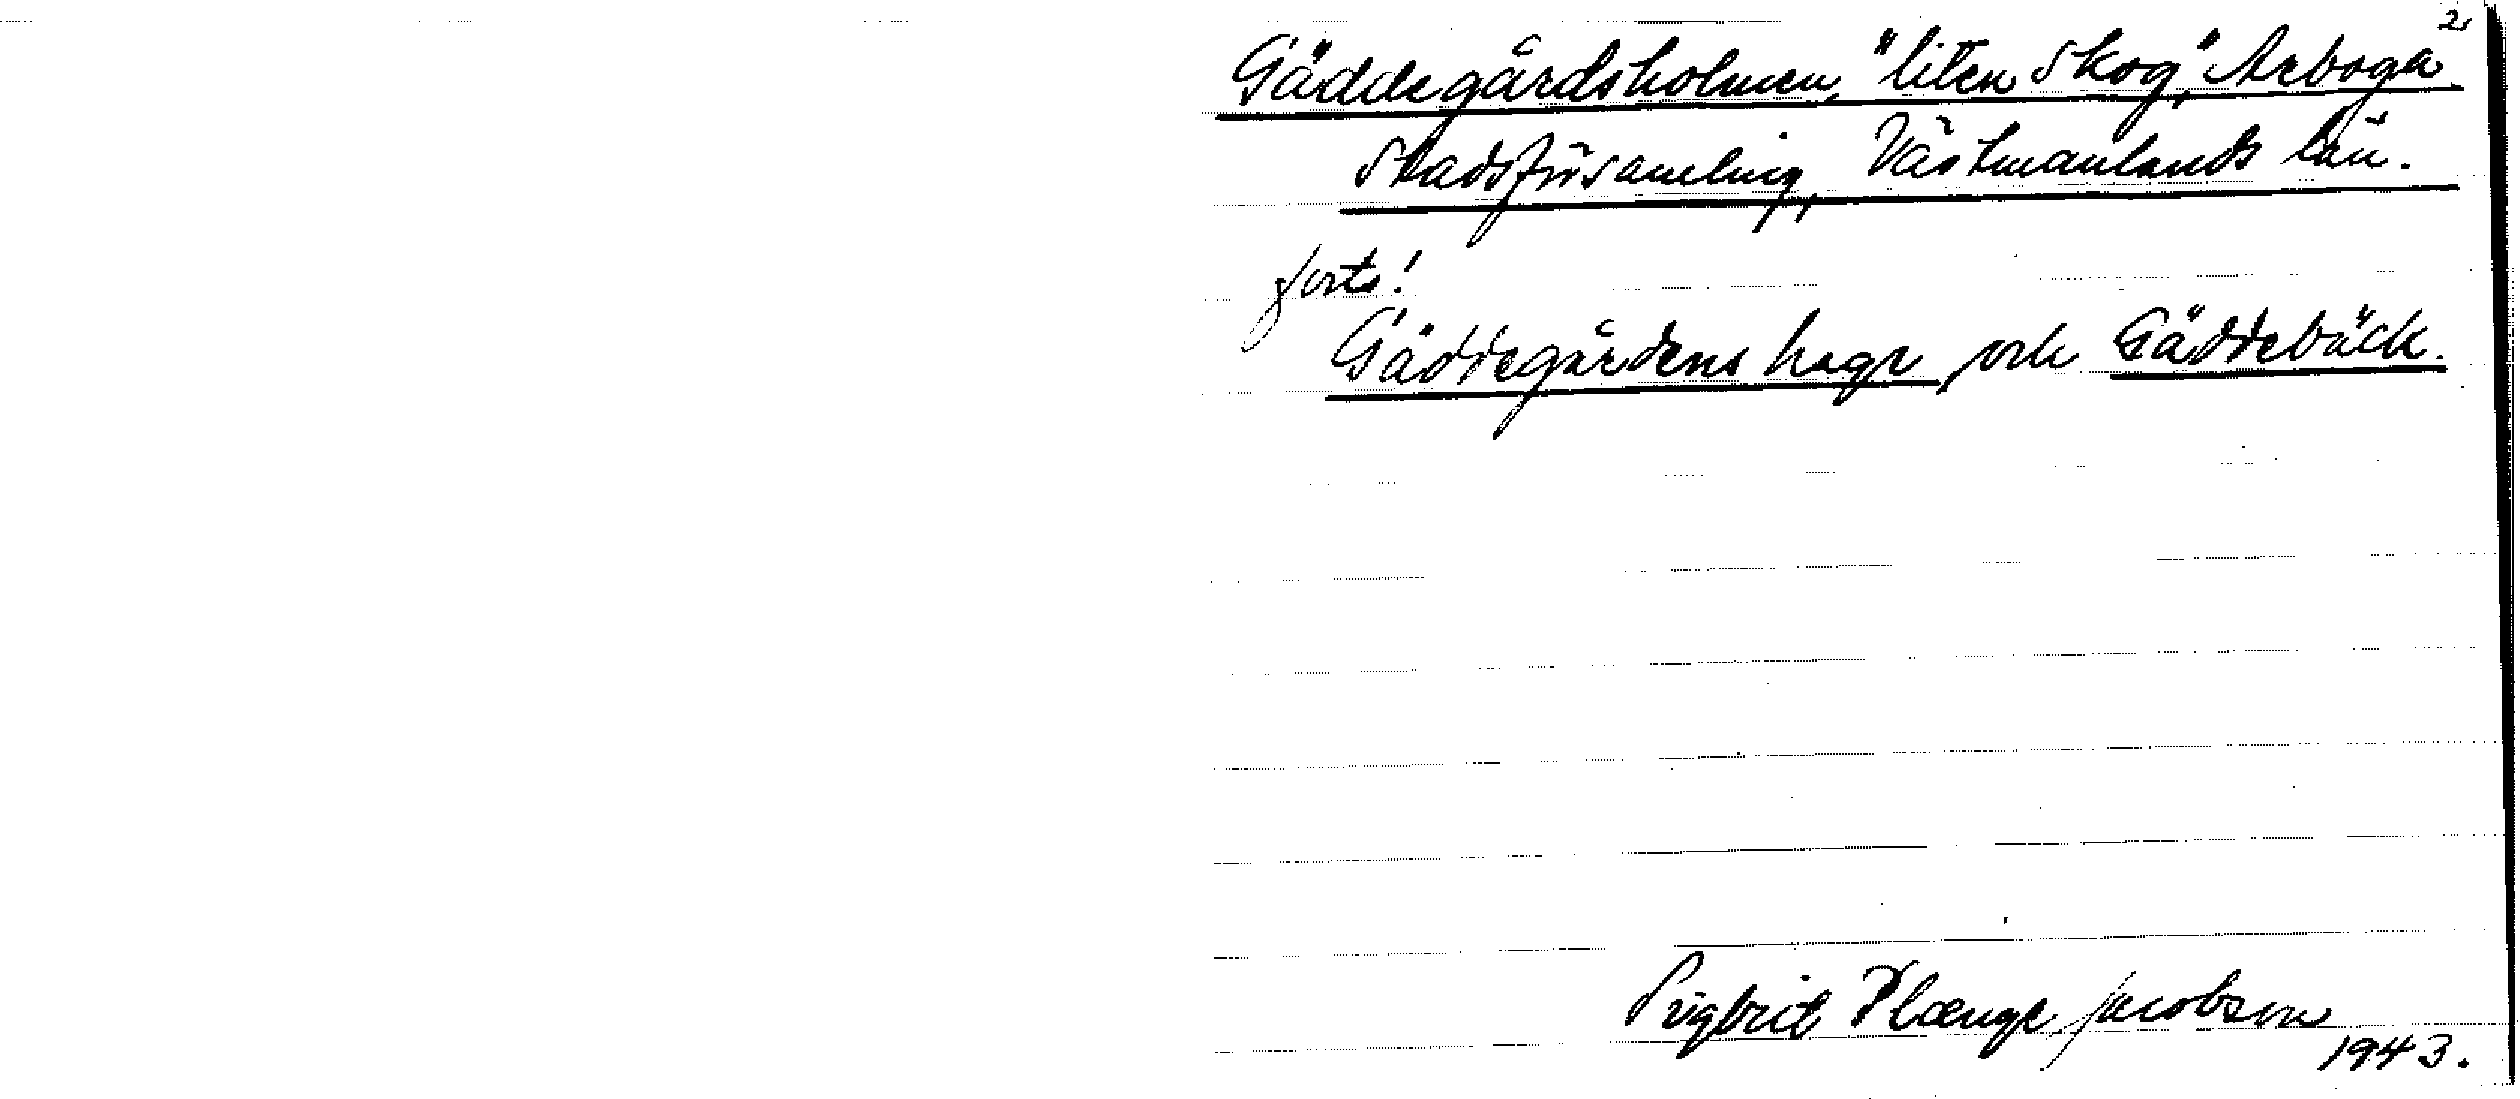 2.
Gäddegårdsholmen, "liten skog", Arboga
Stadsförsamling, Västmanlands län.
forts!
Gäddegårdens hage och Gäddebäck.
Sigbrit Plænge Jacobson
1943.